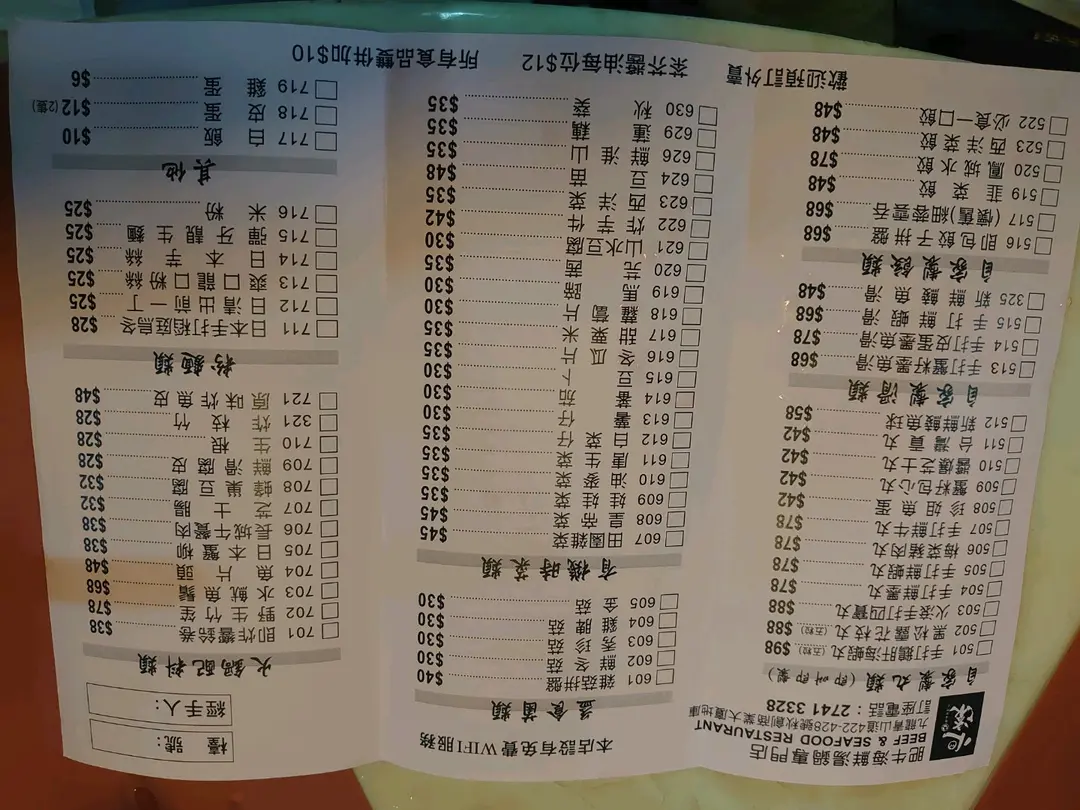 肥牛海鮮湯鍋專門店
BEEF & SEAFOOD RESTAURANT
九龍青山道422-428號秋創商業大廈地庫
訂座電話：2741 3328
自家製丸類 (即叫即製)
501 手打鵝肝海蝦丸(五粒) $98
502 黑松露花枝丸(五粒) $88
503 火滾手打四寶丸 $88
504 手打墨丸 $78
505 手打鮮蝦丸 $78
506 梅菜豬肉丸 $78
507 手打鮮牛丸 $78
508 珍姐魚蛋 $42
509 蟹籽包心丸 $42
510 醬爆芝士丸 $42
511 台灣貢丸 $42
512 新鮮鯪魚球 $58
自家製滑類
513 手打蟹籽墨魚滑 $68
514 手打皮蛋墨魚滑 $78
515 手打鮮蝦滑 $68
325 新鮮鯪魚滑 $48
自家製餃類
516 即包餃子拼盤 $68
517 (懷舊)細蓉雲吞 $68
519 韭菜餃 $48
520 鳳城水餃 $78
523 西洋菜餃 $48
522 必食一口餃 $48
歡迎預訂外賣
本店設有免費WIFI服務
益食菌類
601 雜菇拼盤 $40
602 鮮冬菇 $30
603 秀珍菇 $30
604 雞脾菇 $30
605 金菇 $30
有機時菜類
607 田園雜菜 $45
608 皇帝菜 $45
609 娃娃菜 $35
610 油麥菜 $35
611 唐生菜 $35
612 白菜仔 $35
613 薯仔 $30
614 蕃茄 $30
615 豆卜 $30
616 冬瓜片 $35
617 甜粟米 $35
618 蘿蔔片 $30
619 馬蹄 $30
620 芫茜 $35
621 山水豆腐 $30
622 炸芋件 $42
623 西洋菜 $35
624 豆苗 $48
626 鮮淮山 $35
629 蓮藕 $35
630 秋葵 $35
茶芥醬油每位$12
檯號：
經手人：
火鍋配料類
701 即炸響鈴卷 $38
702 野生竹笙 $78
703 水魷魚鬚 $68
704 魚片頭 $48
705 日本蟹柳 $38
706 長城牛餐肉 $38
707 芝士腸 $32
708 蜂巢豆腐 $32
709 鮮滑腐皮 $28
710 生根 $28
321 炸枝竹 $28
721 原味炸魚皮 $48
粉麵類
711 日本手打稻庭烏冬 $28
712 日清出前一丁 $25
713 爽口龍口粉絲 $25
714 日本芋絲 $25
715 彈牙靚生麵 $25
716 米粉 $25
其他
717 白飯 $10
718 皮蛋 $12(2隻)
719 雞蛋 $6
所有食品雙併加$10